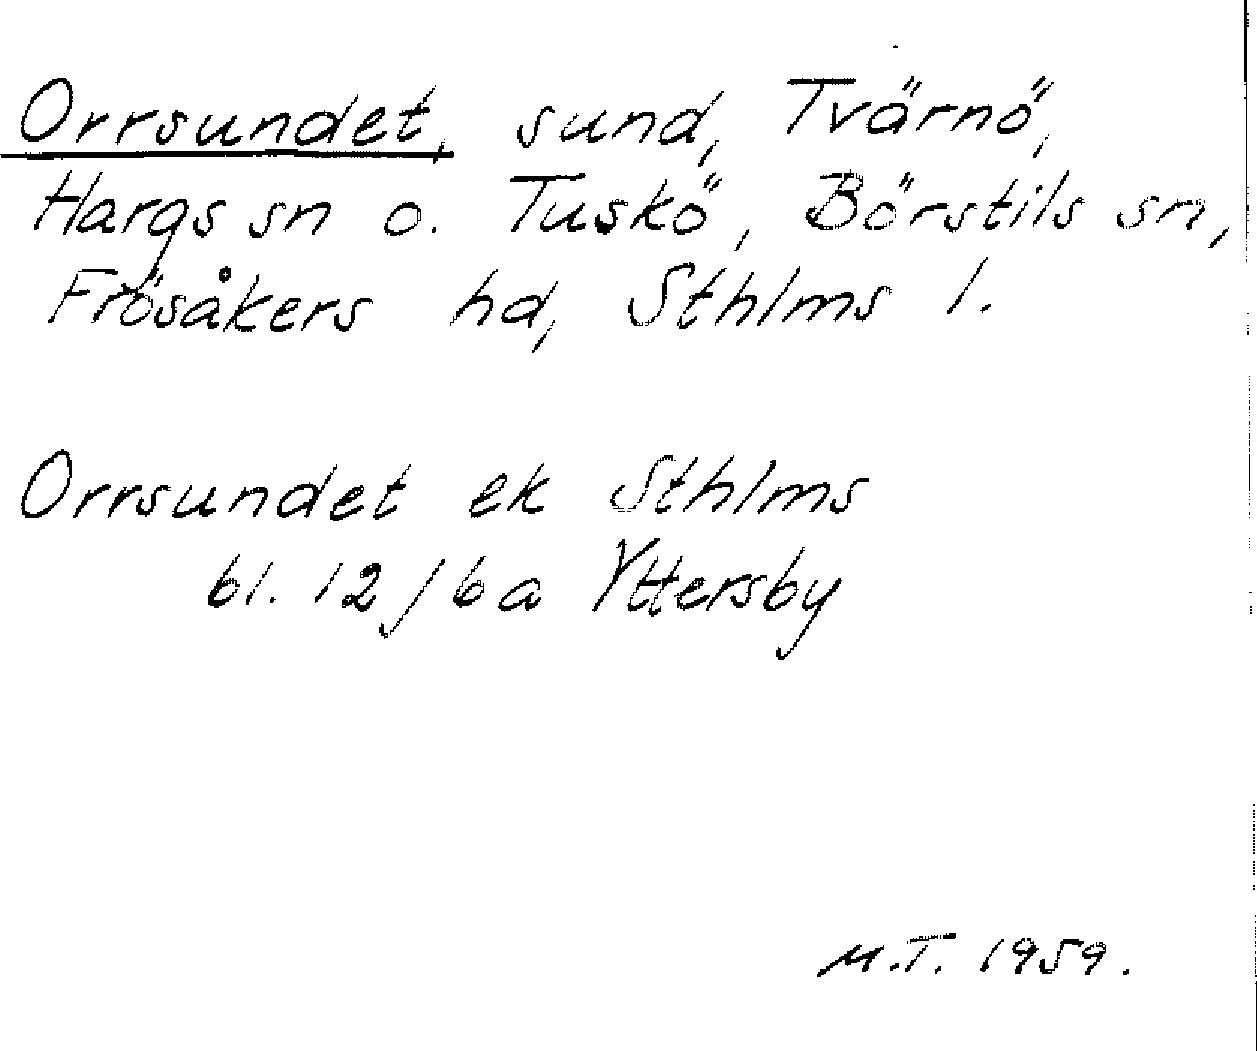 Orrsundet, sund, Tvärnö,
Hargs sn o. Tuskö, Börstils sn,
Frösåkers hd, Sthlms l.
Orrsundet ek Sthlms
bl. 12/6a Yttersby
M.T. 1959.